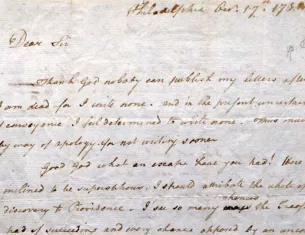 Philadelphia Oct. 17th 178
Dear Sir
Thank God nobody can publish my letters after
I am dead for I write none. and in the present uncertain
of conveyance I feel determined to write none. Thus much
by way of apology for not writing sooner
Good God what an escape have you had! Were
inclined to be superstitious, I should attribute the whole
discovery to Providence. I see so many chances the
had of succeeding and every chance opposed by an